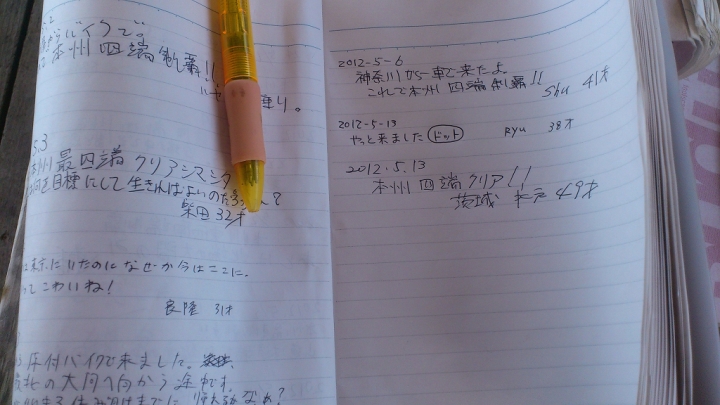 バイクで。
本州四端制覇!!
り。
5.3
本州最四端クリアシマシタ
目標にして生きればよいのだろうか?
柴田32才
東京にいたのになぜか今はここに。
ってこわいね!
良隆 31才
原付バイクで来ました。
の大間へ向かう途中です。
2012-5-6
神奈川から車で来たよ。
これで本州四端制覇!!
Shu 41才
2012-5-13
やっと来ました ドット Ryu 38才
2012.5.13
本州四端クリア!!
茨城 水戸 49才